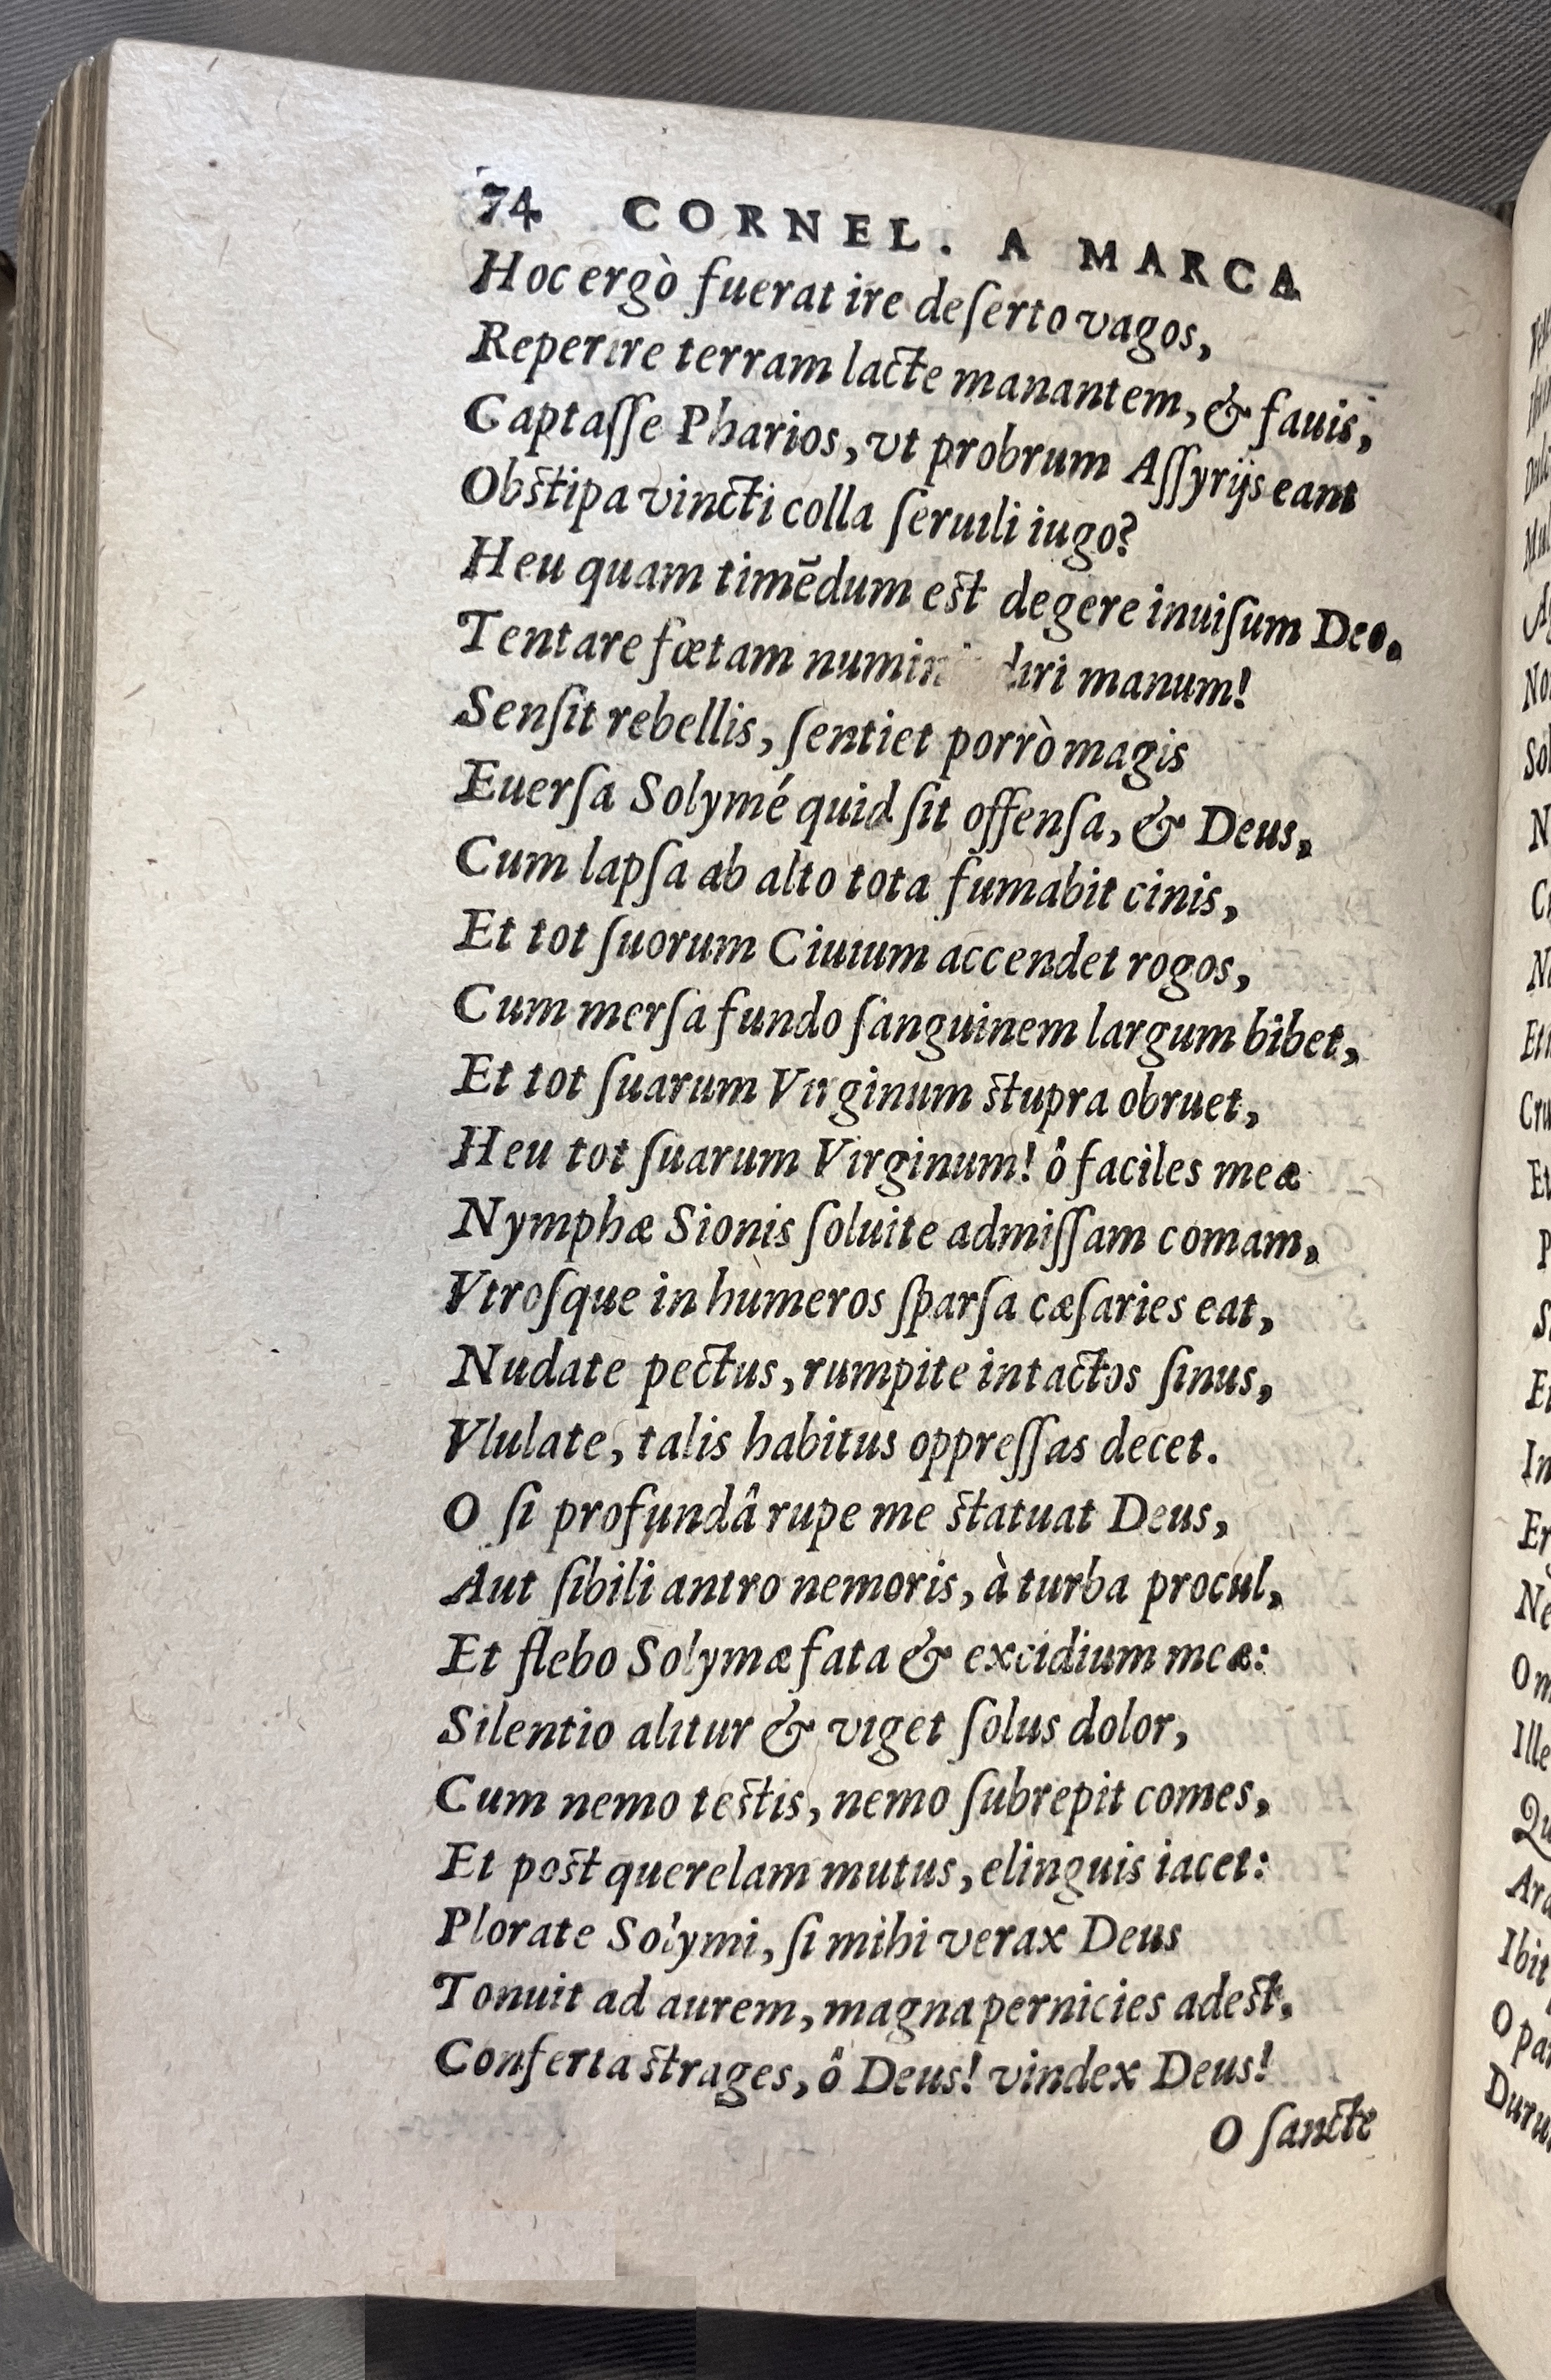 74 CORNEL. A MARCA
Hoc ergò fuerat ire deſerto vagos,
Reperire terram lacte manantem, & fauis,
Captaſſe Pharios, vt probrum Aſſyrijs eant
Obſtipa vincti colla ſeruili iugo?
Heu quam timēdum eſt degere inuiſum Deo.
Tentare fœtam diri manum!
Senſit rebellis, ſentiet porrò magis
Euerſa Solymé quid ſit offenſa, & Deus,
Cum lapſa ab alto tota fumabit cinis,
Et tot ſuorum Ciuium accendet rogos,
Cum merſa fundo ſanguinem largum bibet,
Et tot ſuarum Virginum ſtupra obruet,
Heu tot ſuarum Virginum! ô faciles meæ
Nymphæ Sionis ſoluite admiſſam comam,
Vtroſque in humeros ſparſa cæſaries eat,
Nudate pectus, rumpite intactos ſinus,
Vlulate, talis habitus oppreſſas decet.
O ſi profundâ rupe me ſtatuat Deus,
Aut ſibili antro nemoris, à turba procul,
Et flebo Solymæ fata & excidium meæ:
Silentio alitur & viget ſolus dolor,
Cum nemo teſtis, nemo ſubrepit comes,
Et poſt querelam mutus, elinguis iacet:
Plorate Solymi, ſi mihi verax Deus
Tonuit ad aurem, magna pernicies adeſt,
Conferta ſtrages, ô Deus! vindex Deus!
O ſancte